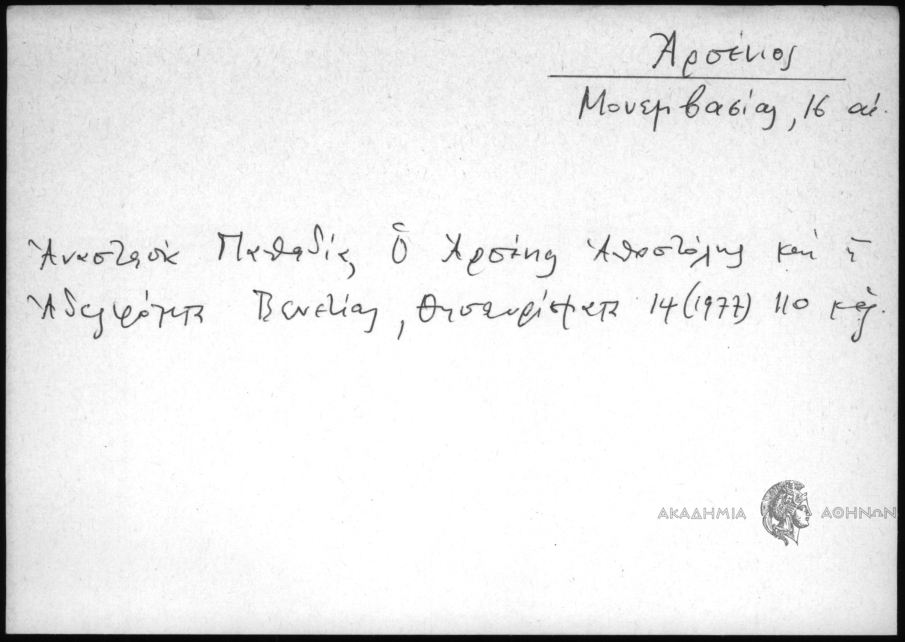 Ἀρσένιος
Μονεμβασίας, 16 αἰ.
Ἀναστασία Παπαδία, Ὁ Ἀρσένης Ἀποστόλης καὶ ἡ
Ἀδελφότητα Βενετίας, Θησαυρίσματα 14 (1977) 110 κἑξ.
ΑΚΑΔΗΜΙΑ ΑΘΗΝΩΝ